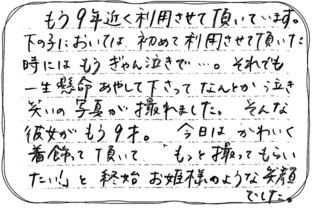 もう9年近く利用させて頂いています。
下の子においては、初めて利用させて頂いた
時にはもうぎゃん泣きで…。それでも
一生懸命あやして下さってなんとか泣き
笑いの写真が撮れました。そんな
彼女がもう9才。今日はかわいく
着飾って頂いて「もっと撮ってもらい
たい!」と終始お姫様のような笑顔
でした。